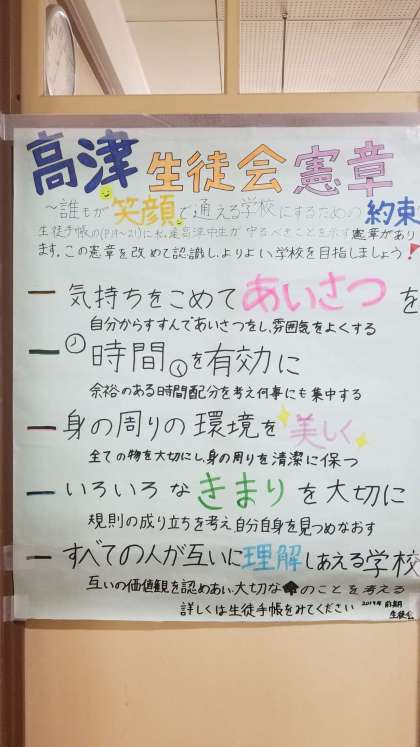 高津生徒会憲章
〜誰もが笑顔で通える学校にするための約束
生徒手帳の(P19〜21)に、高津中生が守るべきことを示す憲章があり
ます。この憲章を改めて認識し、よりよい学校を目指しましょう!
一気持ちをこめてあいさつを
自分からすすんであいさつをし、雰囲気をよくする
一時間を有効に
余裕のある時間配分を考え何事にも集中する
一身の周りの環境を美しく
全ての物を大切にし、身の周りを清潔に保つ
一いろいろなきまりを大切に
規則の成り立ちを考え自分自身を見つめなおす
一すべての人が互いに理解しあえる学校
互いの価値観を認めあい、大切な命のことを考える
詳しくは生徒手帳をみてください 2019年 前期
生徒会